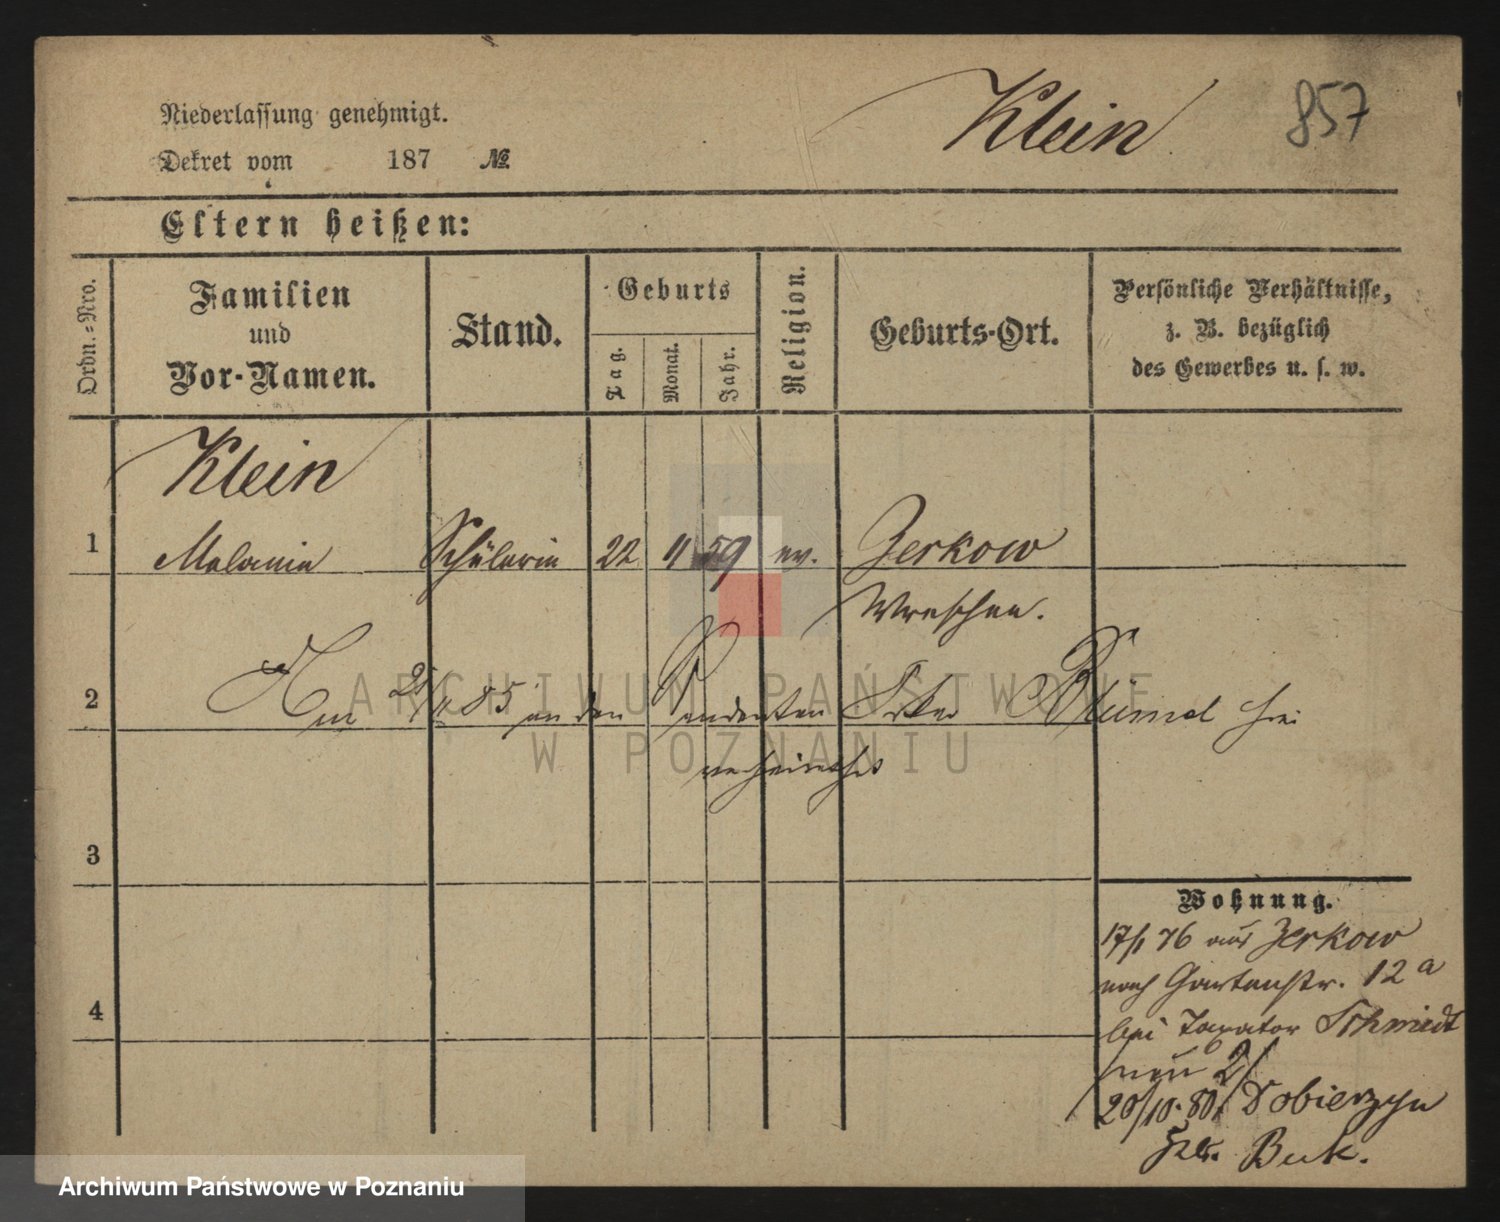 Klein 857
Niederlassung genehmigt.
Dekret vom 187 №
Eltern heißen:
Ordn.-Nro.
Familien
und
Vor-Namen.
Stand.
Geburts
Tag.
Monat.
Jahr.
Religion.
Geburts-Ort.
Persönliche Verhältnisse,
z. B. bezüglich
des Gewerbes u. s. w.
Klein
1 Melanie Schülerin 22 11 59 ev. Zerkow
Wreschen.
2 85 an den Rendanten Blümel hier
verheirathet
3
4
Wohnung.
17/1 76 aus Zerkow
nach Gartenstr. 12a
bei Taxator Schmidt
20/10. 80. Dobierzyn
Krs. Buk.
ARCHIWUM PAŃSTWOWE
W POZNANIU
Archiwum Państwowe w Poznaniu